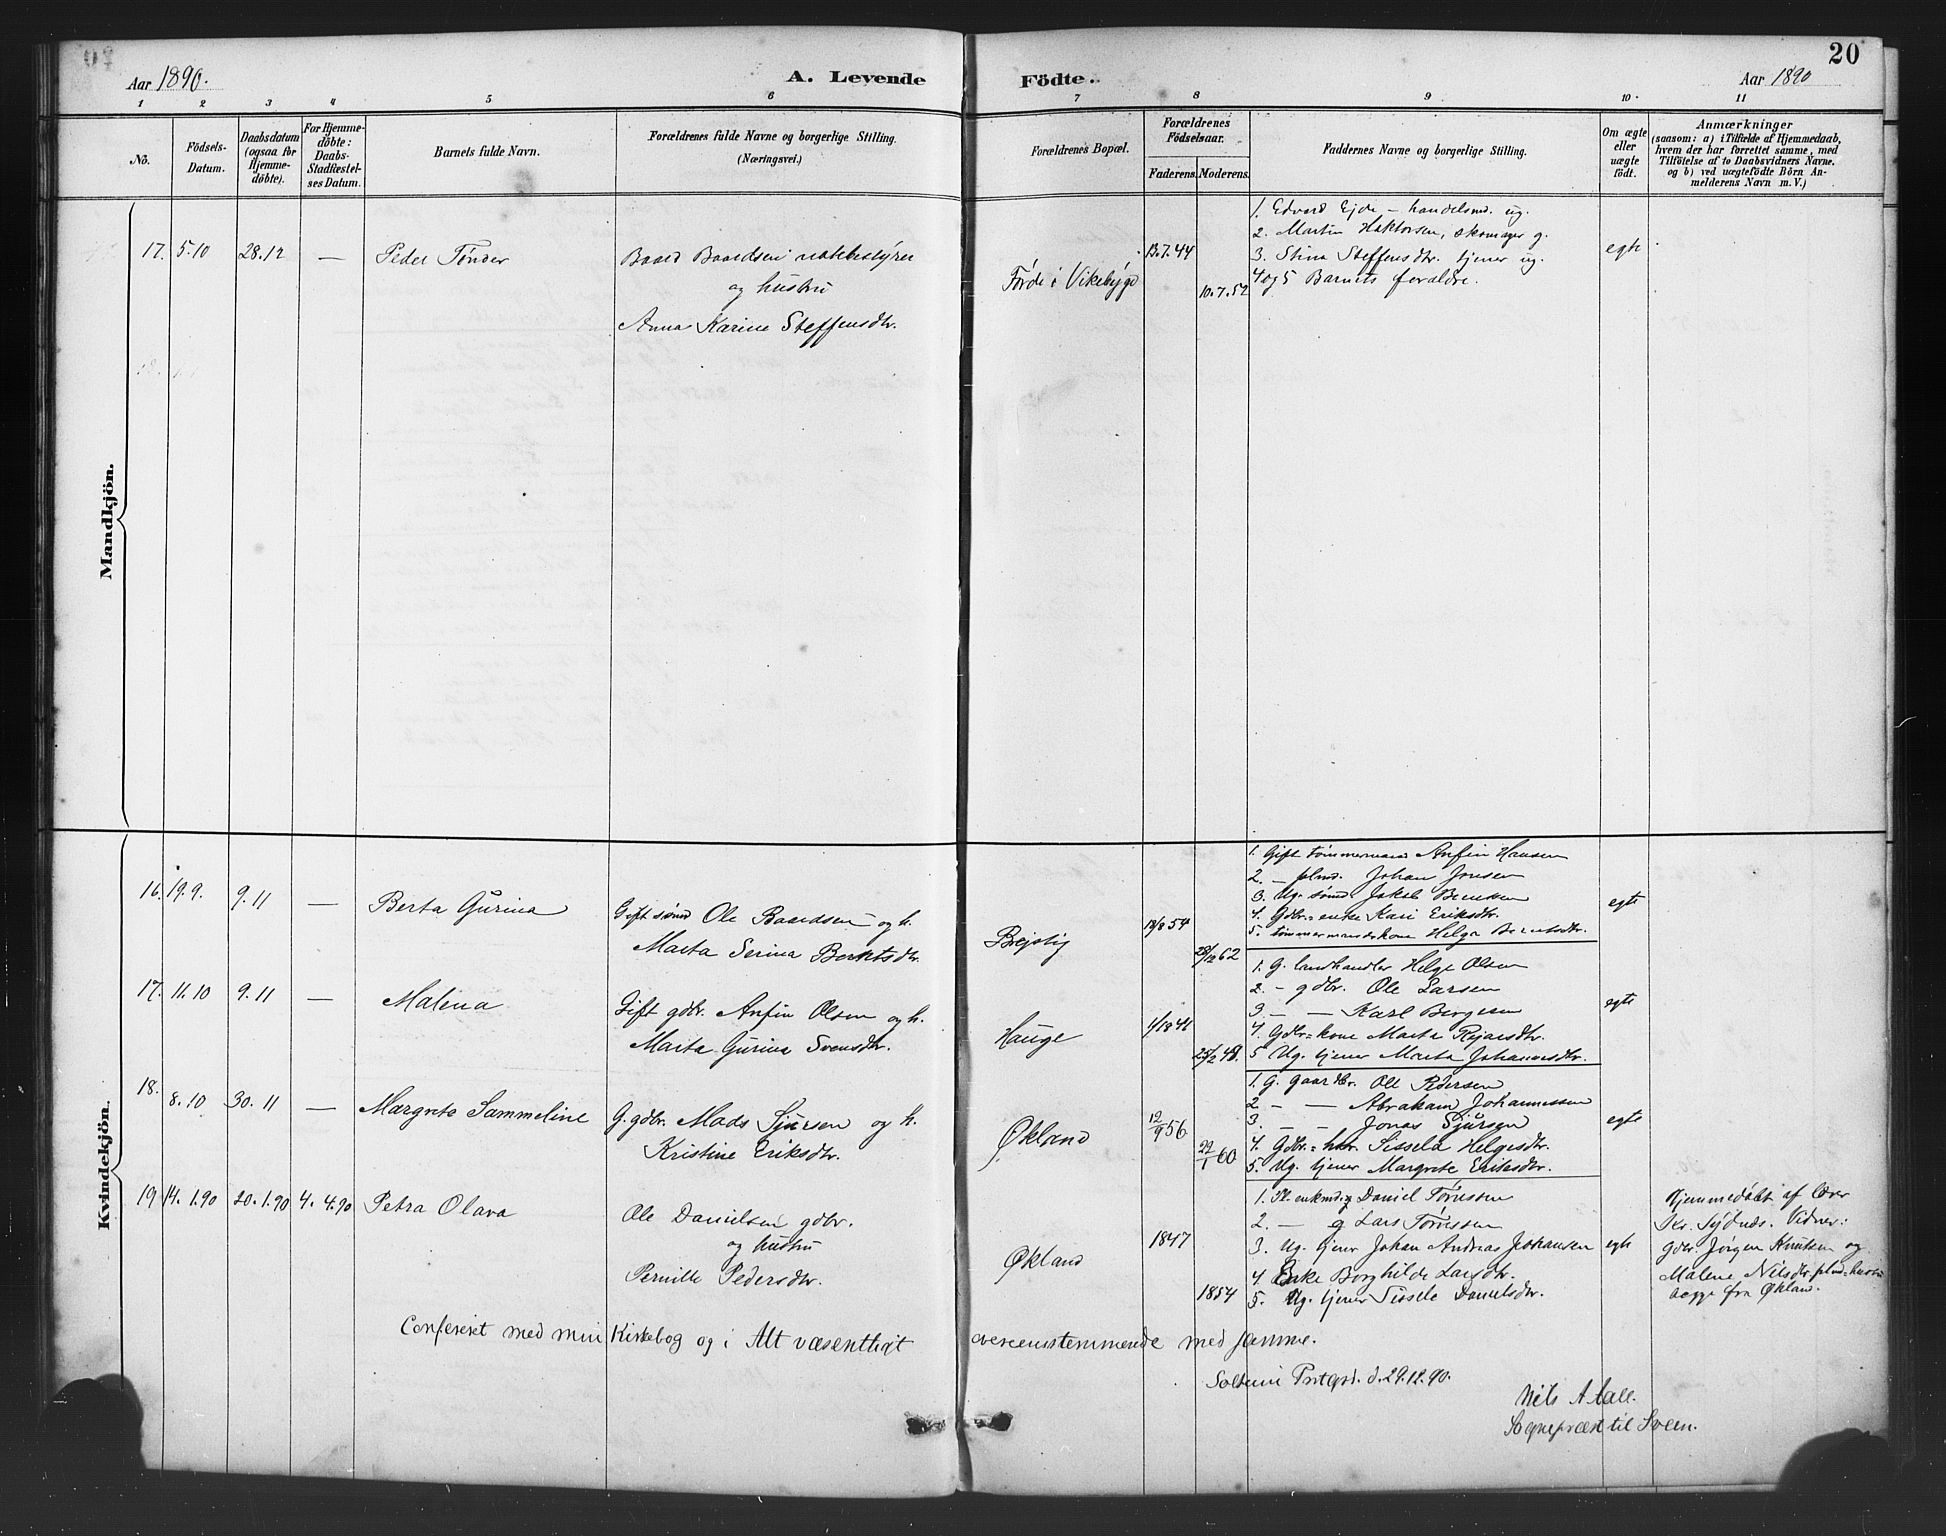 20
Aar 1890.
A. Levende Födte.
Aar 1890
1 2 3 4 5 6 7 8 9 10 11
No.
Födsels-Datum.
Daabsdatum (ogsaa for Hjemme-döbte).
For Hjemme-döbte: Daabs-Stadfæstel-ses Datum.
Barnets fulde Navn.
Forældrenes fulde Navne og borgerlige Stilling. (Næringsvei.)
Forældrenes Bopæl.
Forældrenes Födselsaar.
Faderens. Moderens.
Faddernes Navne og borgerlige Stilling.
Om ægte eller uægte födt.
Anmærkninger
(saasom: a) i Tilfælde af Hjemmedaab,
hvem der har forrettet samme, med
Tilföielse af to Daabsvidners Navne.
og b) ved uægtefödte Börn An-
melderens Navn m. V.)
Mandkjön.
17. 5.10 28.12 — Peder Tønder
Baard Baardsen notebestyrer
og hustru
Anna Karine Steffensdtr.
Førde i Vikebygd
13.7.44
10.7.52
1. Edvard Ejde – handelsmd. ug.
2. Martin Haktorsen, skomager g.
3. Stina Steffensdtr. tjener ug.
4 og 5 Barnets foraldre.
egte
Kvindekjön.
16. 19.9. 9.11 — Berta Gurina
Gift sømd Ole Baardsen og h.
Marta Serina Berntsdtr.
18/8 54
28/12 62
1. Gift tømmermand Anfin Hansen
2. — plmd. Johan Jonsen
3. Ug. sømd Jakob
4. Gdbr.=enke Kari Eriksdtr.
5. tømmermandskone Helga Berntsdtr.
egte
17. 11.10 9.11 — Malena
Gift gdbr. Anfin Olsen og h.
Marta Gurina Svensdtr.
Hauge
1/1 1841
25/2 48.
1. G. landhandler Helge Olsen
2. – gdbr. Ole Larsen
3. — — Karl Børgesen
4. Gdbr=kone Marta
5 Ug. tjener Marta Johannesdtr.
egte
18. 8.10 30.11 — Margrete Sammeline
G. gdbr. Mads Sjursen og h.
Kristine Eriksdtr.
Økland
12/9 56
22/1 60
1. G. gaardbr. Ole Pedersen
2 — — Abraham Johannessen
3. — — Jonas Sjursen
4. Gdbr.= Sissela Helgesdtr.
5. Ug. tjener Margrete Eriksdtr.
egte
19 14.1.90 20.1.90 4.4.90 Petra Olava
Ole Danielsen gdbr.
og hustru
Pernille Pedersdtr.
Økland
1847
1854
1. enkmd Daniel Tønessen
2. — g Lars Tønessen
3. Ug. tjener Johan Andreas Johansen
4. Enke Borghilde Larsdtr.
5. Ug. tjener Sissela Danielsdtr.
egte
Hjemmedøbt af lærer
Kr. Sydnes. Vidner:
gdbr. Jørgen Knutsen og
Malene Nilsdtr plmd=hustru
begge fra Økland.
Confereret med min Kirkebog og i Alt væsentligt overeensstemmende med samme.
d. 29.12.90.
Nils Aall.
Sognepræst til Sveen.